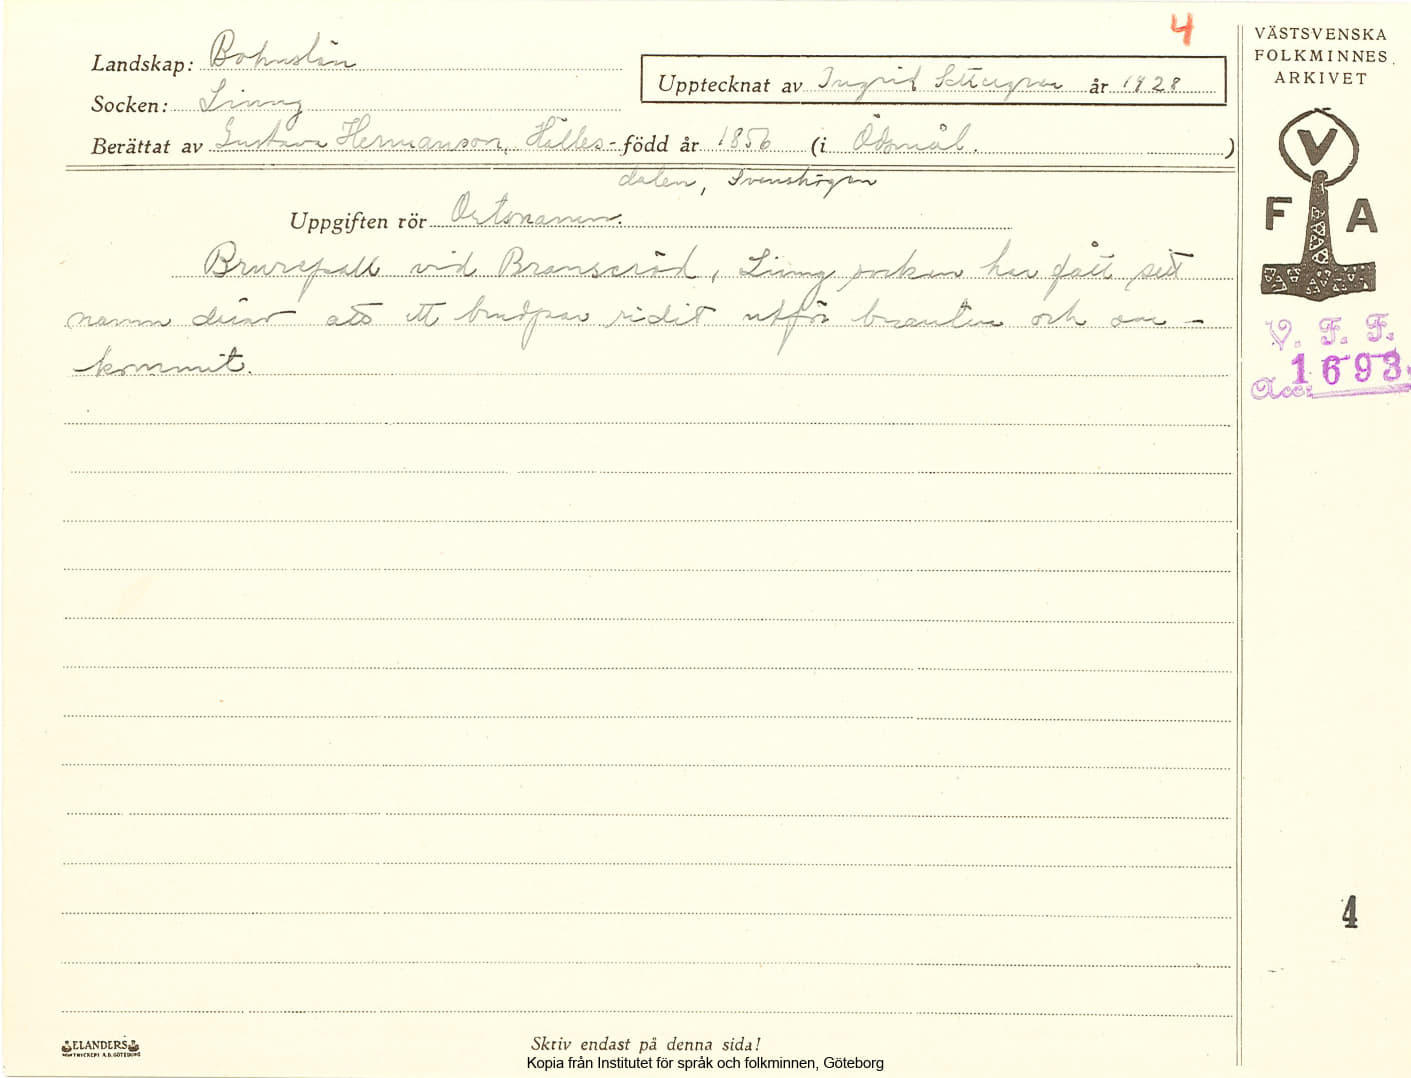 4
VÄSTSVENSKA
FOLKMINNES
ARKIVET
Landskap: Bohuslän
Upptecknat av Ingrid år 1928
Socken: Ljung
Berättat av Gustava Hermanson, Hälles- född år 1856 (i Ödsmål. )
dalen, Svenshögen
Uppgiften rör Ortsnamn.
V
F A
Brurefjäll vid Branseröd, Ljung socken har fått sitt
namn därav att ett brudpar ridit utför branten och om-
kommit.
V. F. F.
Acc: 1693
4
ELANDERS
GÖTEBORG
Skriv endast på denna sida!
Kopia från Institutet för språk och folkminnen, Göteborg